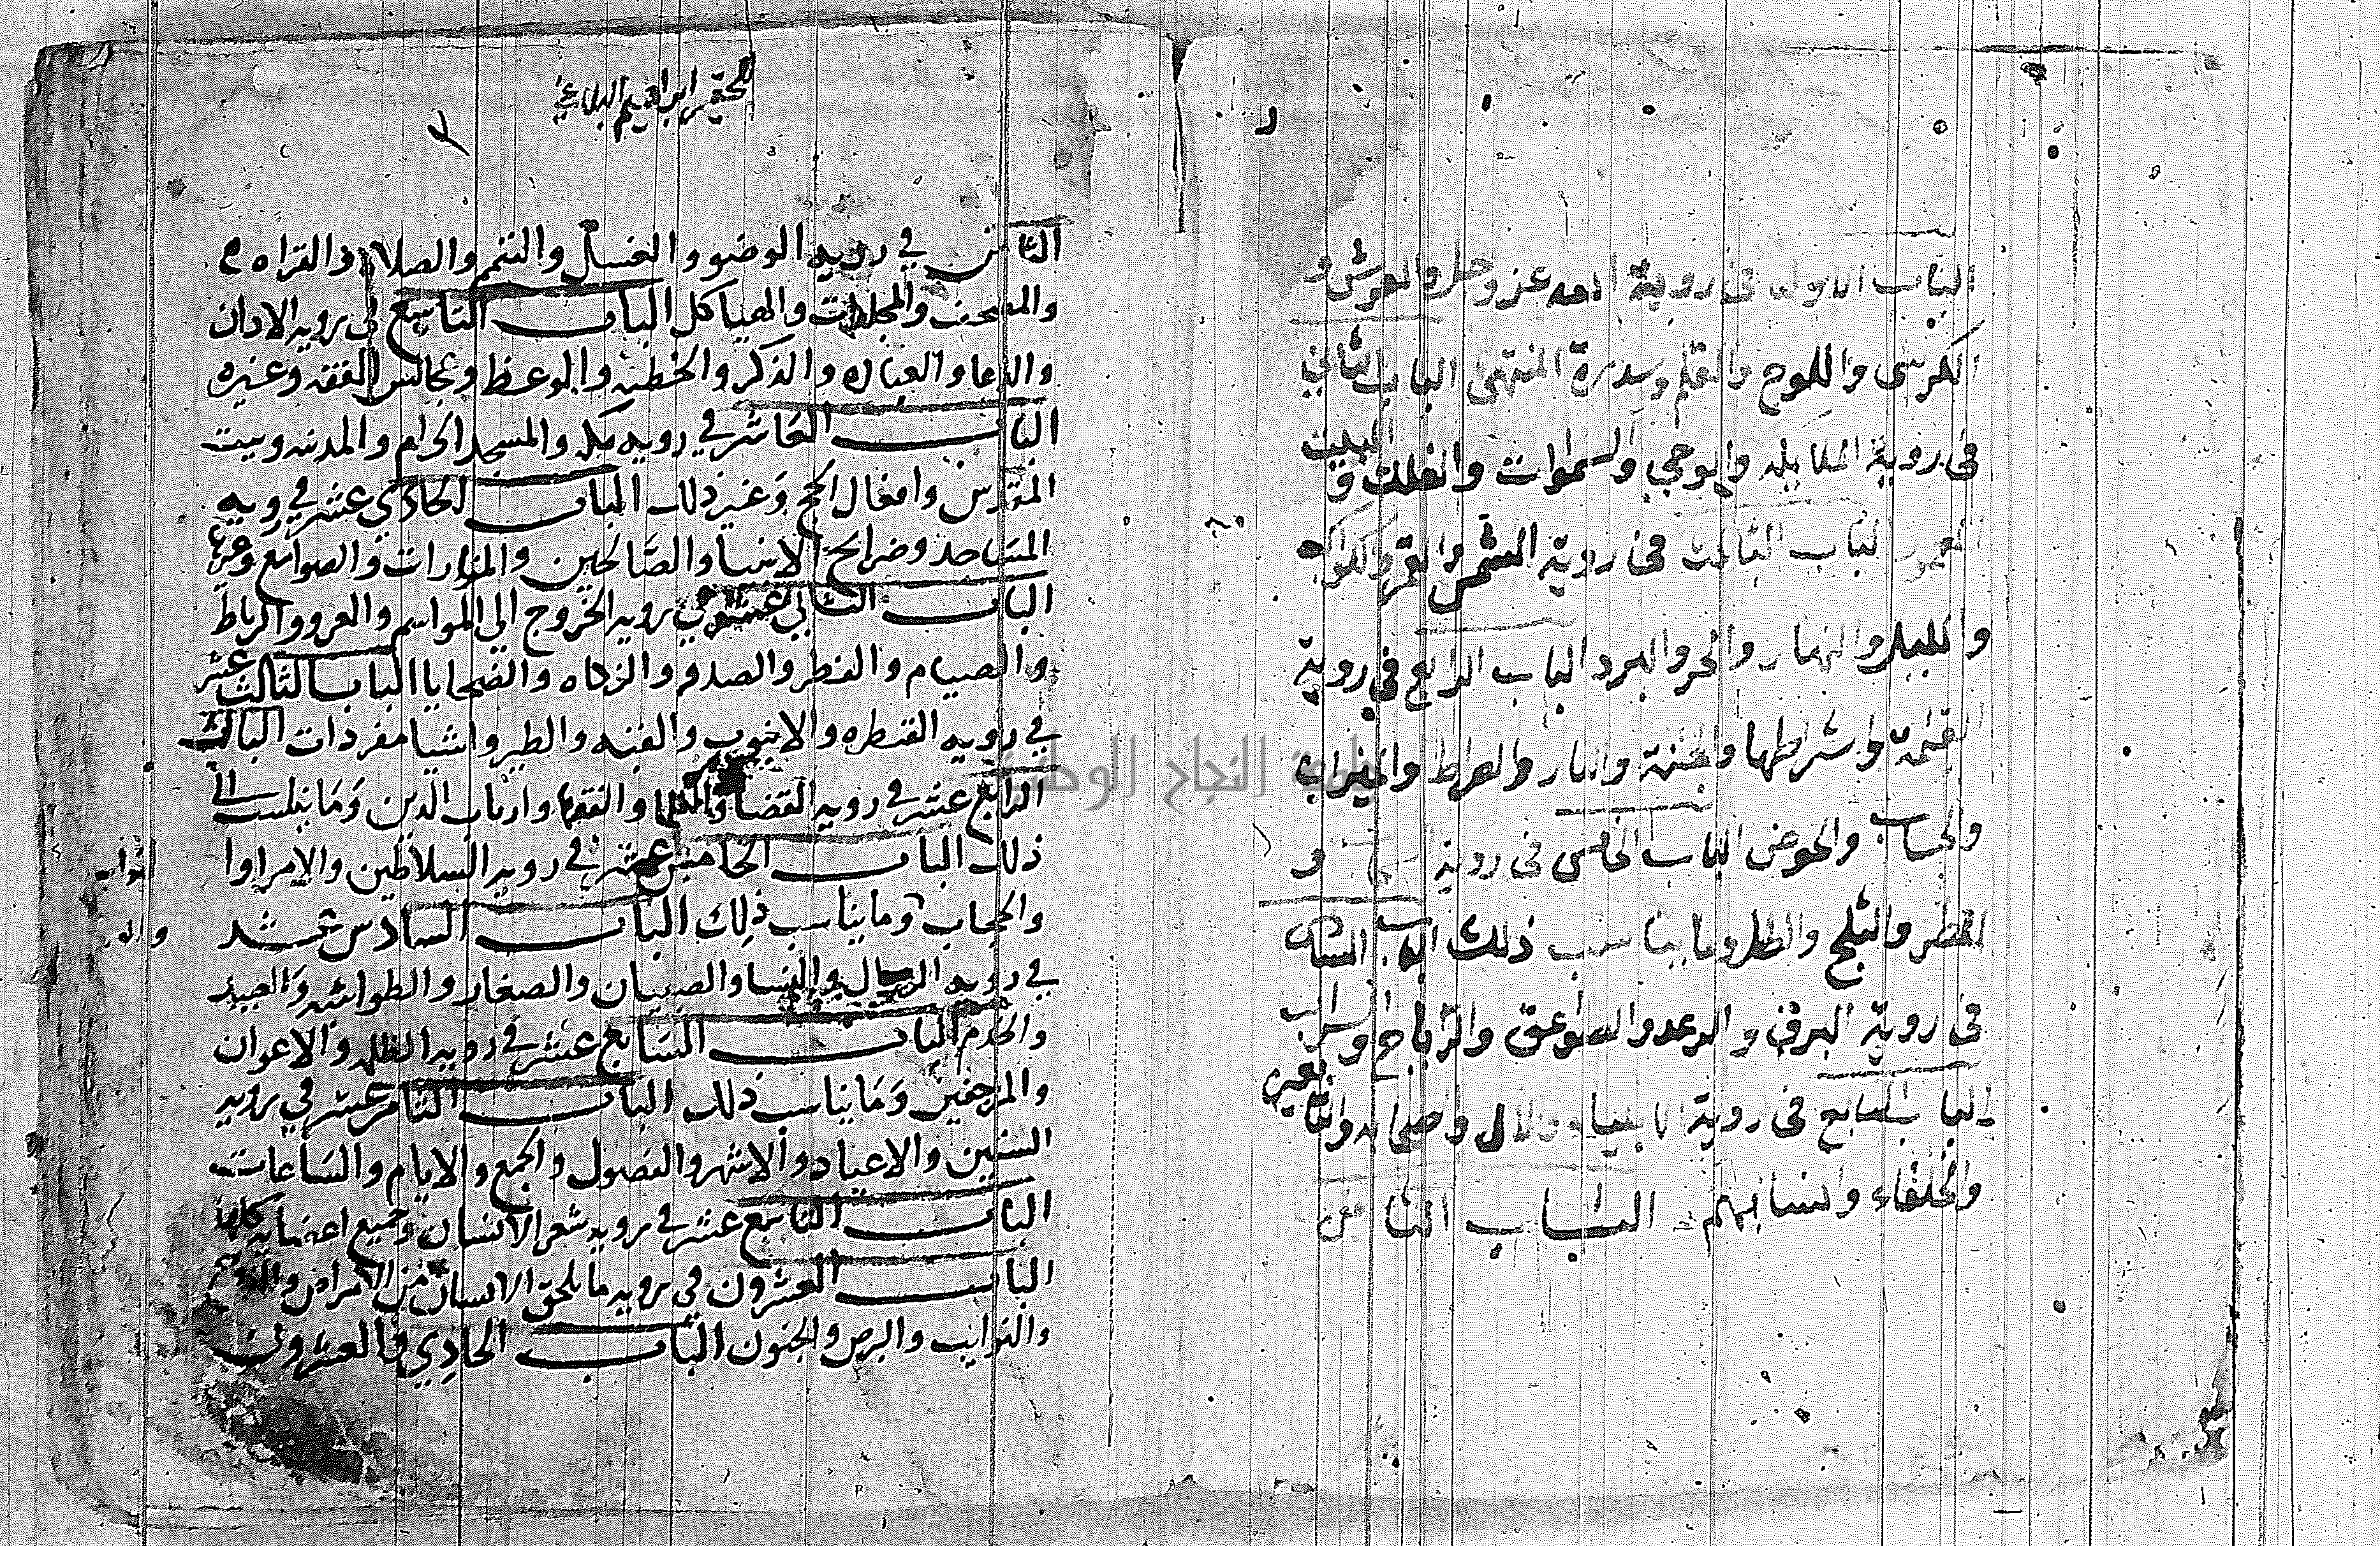 الباب الاول فى روية الله عز وجل والعرش و
الكرسى واللوح والقلم وسدرة المنتهى الباب الثاني
فى روية الملايكه والوحي والسموات والفلك و البيت
المعمور الباب الثالث فى روية الشمس والقمر والكواكب
والليل والنهار والحر والبرد الباب الرابع في روية
القيمة واشراطها والجنة والنار والصراط والميزان
والحساب والحوض الباب الخامس فى روية و
المطر والثلج والطل وما يناسب ذلك الباب السادس
فى روية البرق والرعد والصواعق والرياح والسراب
الباب السابع فى روية الانبياء والال واصحابه والتابعين
والخلفاء وانسابهم الباب الثامن
للحقير ابراهيم
الثامن في رويه الوضو والغسل والتيمم والصلاه والقراه
والمصحف والمجلدات والهياكل الباب التاسع في رويه الادان
والدعا والعباده والذكر والخطبه والوعظ ومجالس الفقه وغيره
الباب العاشر في رويه مكه والمسجد الحرام والمدينه وبيت
المقدس وافعال الحج وغير ذلك الباب الحادي عشر في رويه
المساجد وضرايح الانبيا والصالحين والمزارات والصوامع وغيرها
الباب الثاني عشر في رويه الخروج الي المواسم والغزو والرباط
والصيام والفطر والصدقه والزكاه والضحايا الباب الثالث عشر
في رويه القنطره والانبوب والطير واشيا مفردات الباب
الرابع عشر في رويه القضا والعلما والفقها وارباب الدين وما ينسب الي
ذلك الباب الخامس عشر في رويه السلاطين والامرا وا
النواب
والحجاب وما يناسب ذلك الباب السادس عشر
في رويه الرجال والنسا والصبيان والصغار والطواشيه والعبيد
والخدم الباب السابع عشر في رويه الظلمه والاعوان
والمرجفين وما يناسب ذلك الباب الثامن عشر في رويه
السنين والاعياد والاشهر والفصول والجمع والايام والساعات
الباب التاسع عشر في رويه شعر الانسان وجميع اعضايه كلها
الباب العشرون في رويه ما يلحق الانسان من الامراض
والنوايب والبرص والجنون الباب الحادي والعشرون
النجاح الوطنية